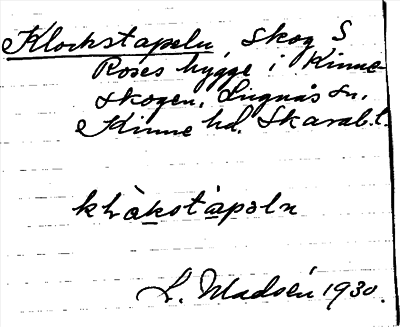 Klockstapeln, skog S
Roses bygge i Kinne-
skogen, Lugnås sn,
Kinne hd. Skarab.l.
klåkstapəln
L. Madsén 1930.